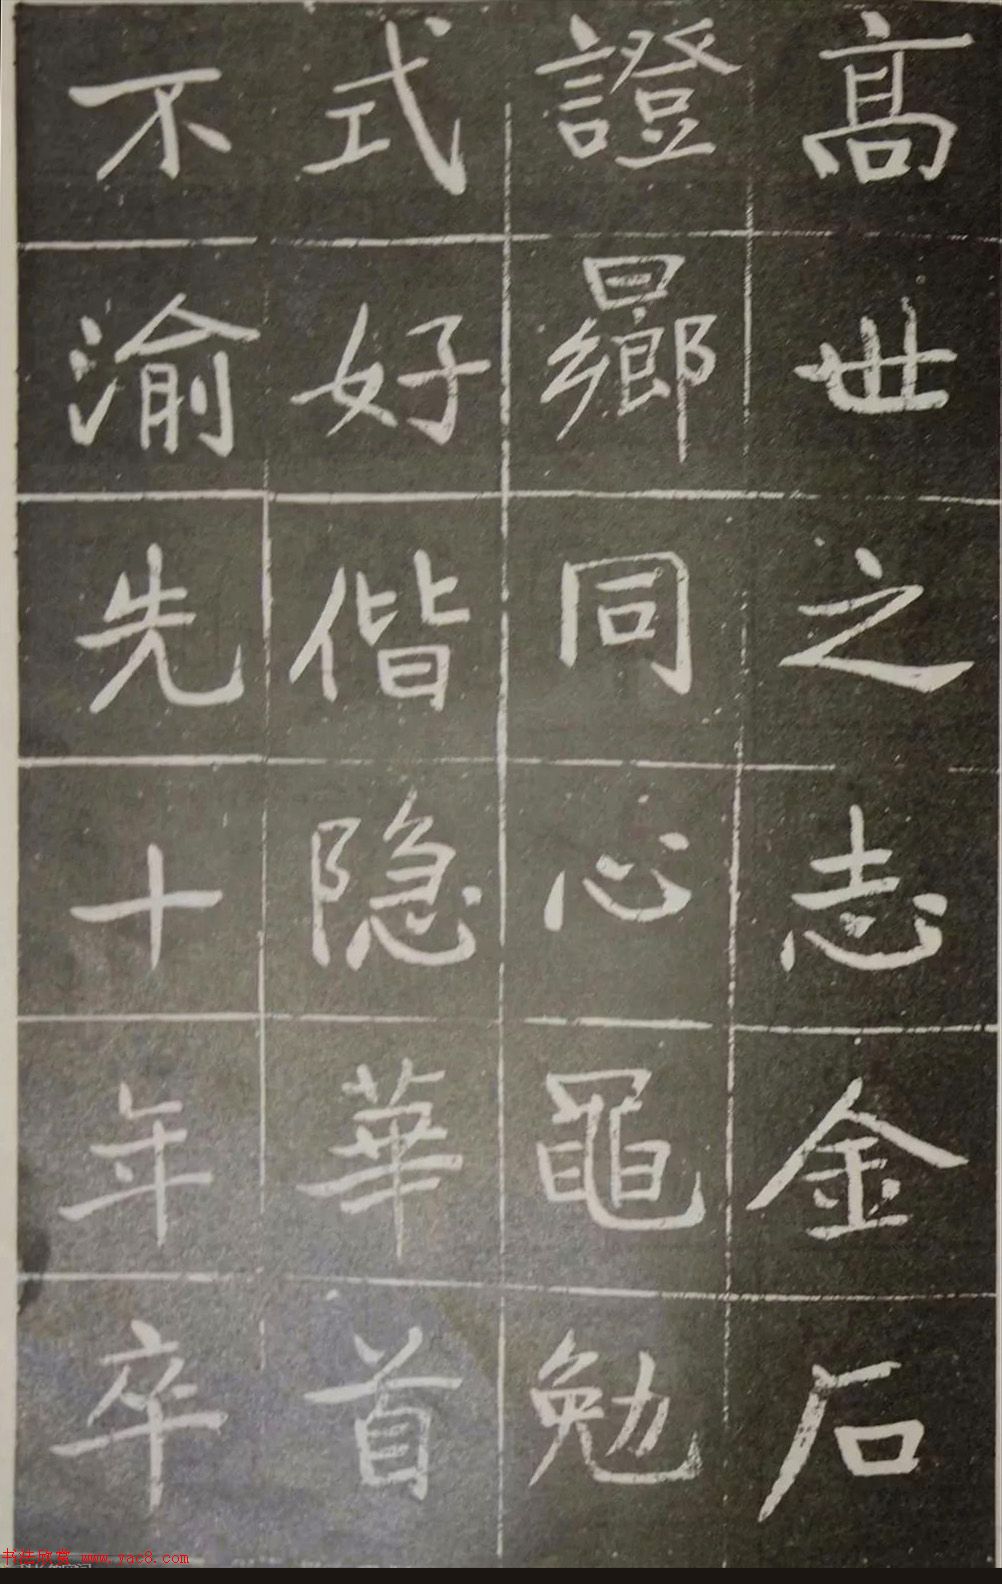 高世之志金石
證曏同心黽勉
式好偕隐華首
不渝先十年卒
书法欣赏 www.yac8.com